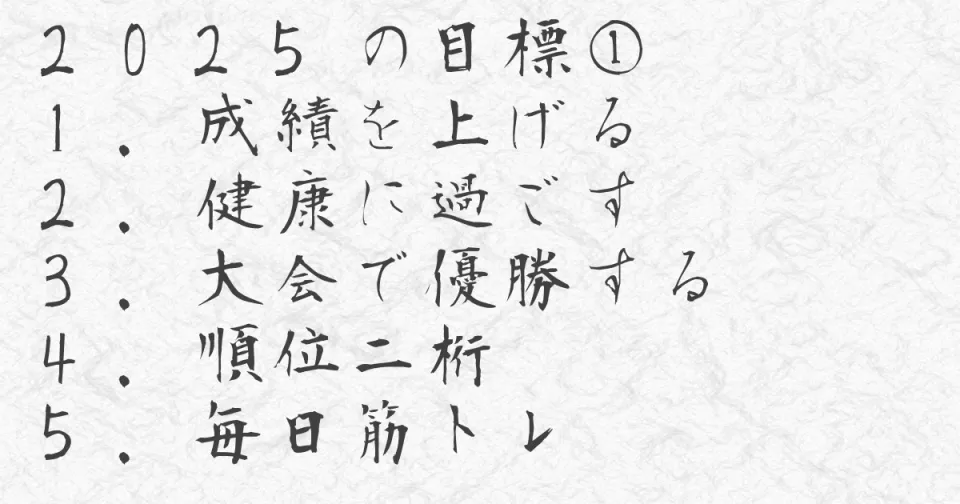 2025の目標①
1.成績を上げる
2.健康に過ごす
3.大会で優勝する
4.順位二桁
5.毎日筋トレ